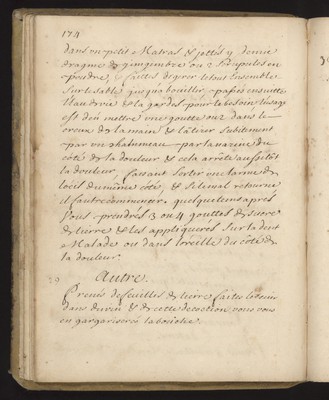 174
dans un petit Matras & jettés y demie
dragme de gingimbre ou 2 scrupules en
poudre, faites digerer le tout Ensemble
sur le sable jusqu'a bouillir. passés ensuitte
l'eau de vie & la gardés pour le besoin l'usage
est d'en mettre une goutte ou 2 dans le
creux de la main & l'atirer subitement
par un chalumeau par la narine du
côté de la douleur & cela arrête aussitot
la douleur, faisant sortir une larme de
l'oeil du même côté, & si le mal retourne
il faut recommencer, quelque tems aprés
Vous prendrés 3 ou 4 gouttes de sucre
de lierre & les appliquerés sur la dent
Malade ou dans l'oreille du côté de
la douleur.
Autre.
Prenés des feuilles de lierre faites les cuire
dans du vin & de cette decoction vous vous
en gargariserés la bouche.